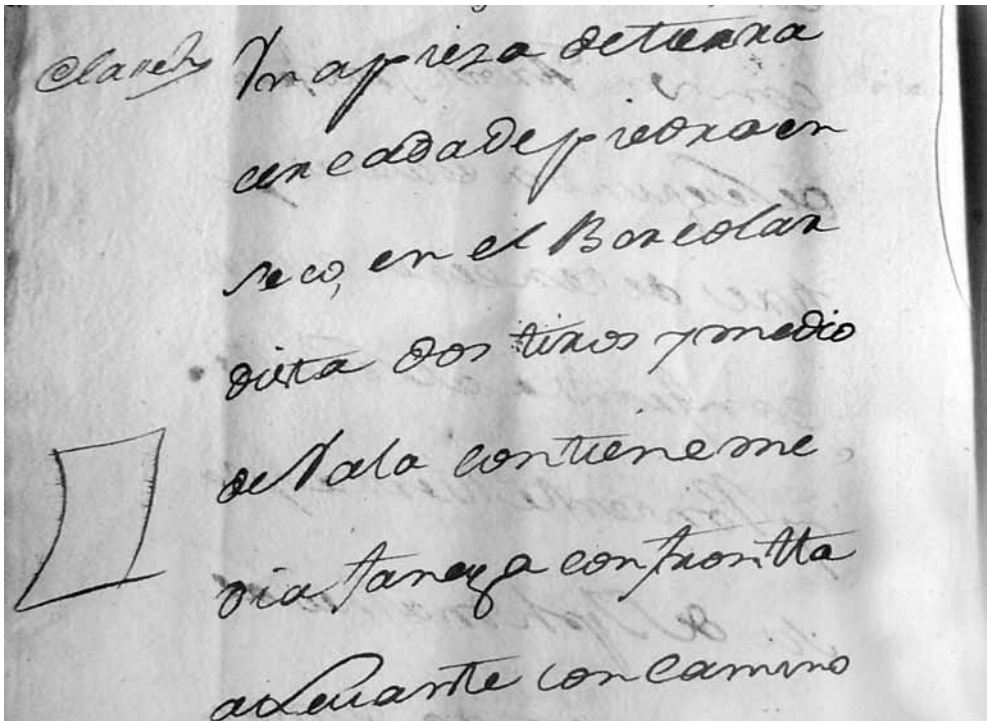 Una pieza de tierra
cercada de piedra en
seco, en el Barcolar
dista dos tiros y medio
de Vala contiene me
dia fanega confrontta
a Levante con camino